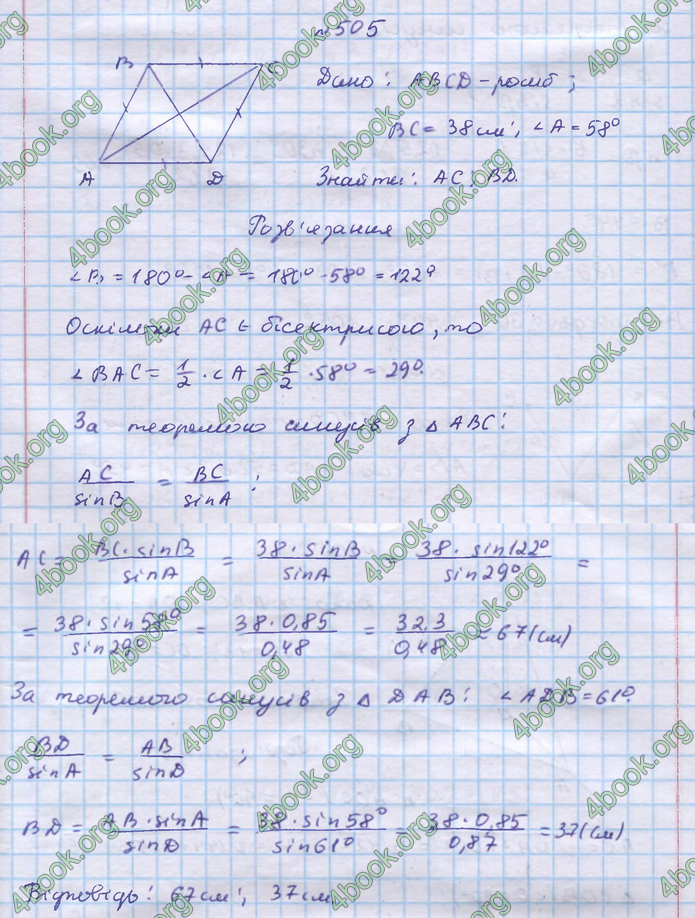 №505
B C
A D
Дано: ABCD - ромб;
BC = 38 см; ∠A = 58°
Знайти: AC; BD.
Розв'язання
∠B = 180° - ∠A = 180° - 58° = 122°
Оскільки AC є бісектрисою, то
∠BAC = 1/2 · ∠A = 1/2 · 58° = 29°.
За теоремою синусів з △ABC:
AC/sinB = BC/sinA;
AC = BC · sinB/sinA = 38 · sinB/sinA = 38 · sin122°/sin29° =
= 38 · sin58°/sin29° = 38 · 0,85/0,48 = 32,3/0,48 = 67 (см)
За теоремою синусів з △DAB: ∠ADB = 61°.
BD/sinA = AB/sinD;
BD = AB · sinA/sinD = 38 · sin58°/sin61° = 38 · 0,85/0,87 = 37 (см)
Відповідь: 67 см; 37 см
4book.org